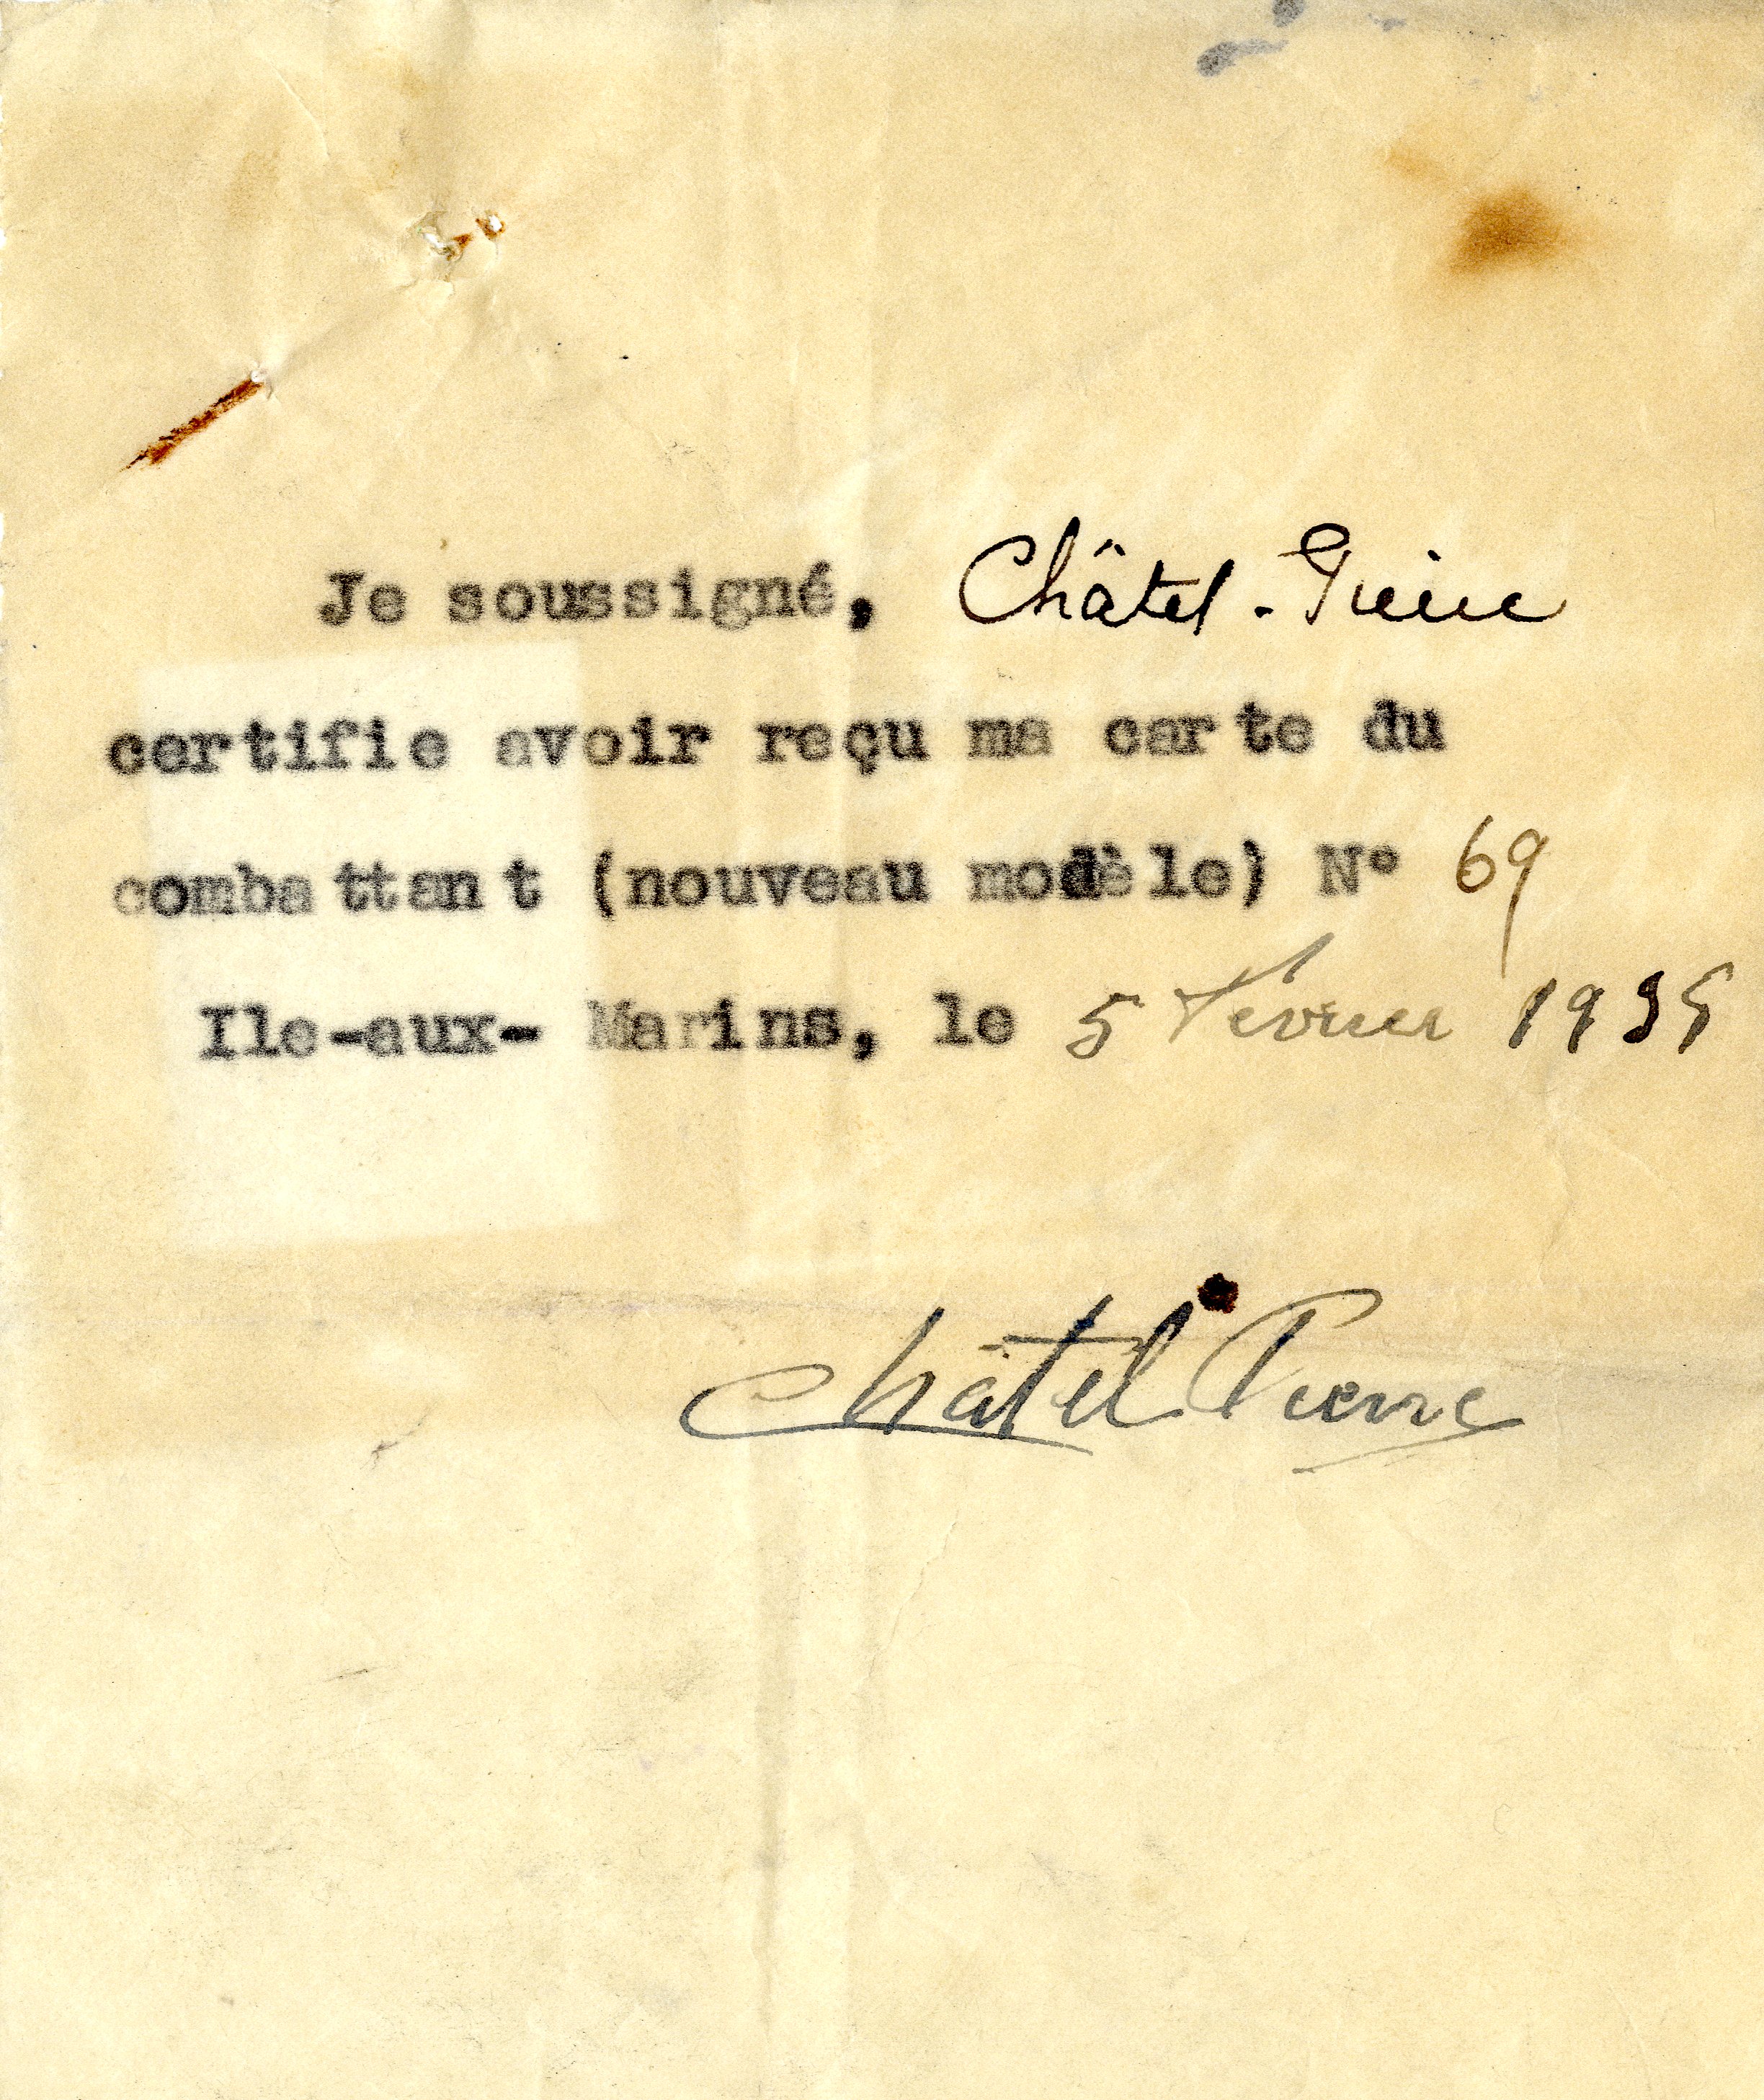 Je soussigné, Châtel - Pierre
certifie avoir reçu ma carte du
combattant (nouveau modèle) N° 69
Ile-aux- Marins, le 5 Février 1935
Châtel Pierre